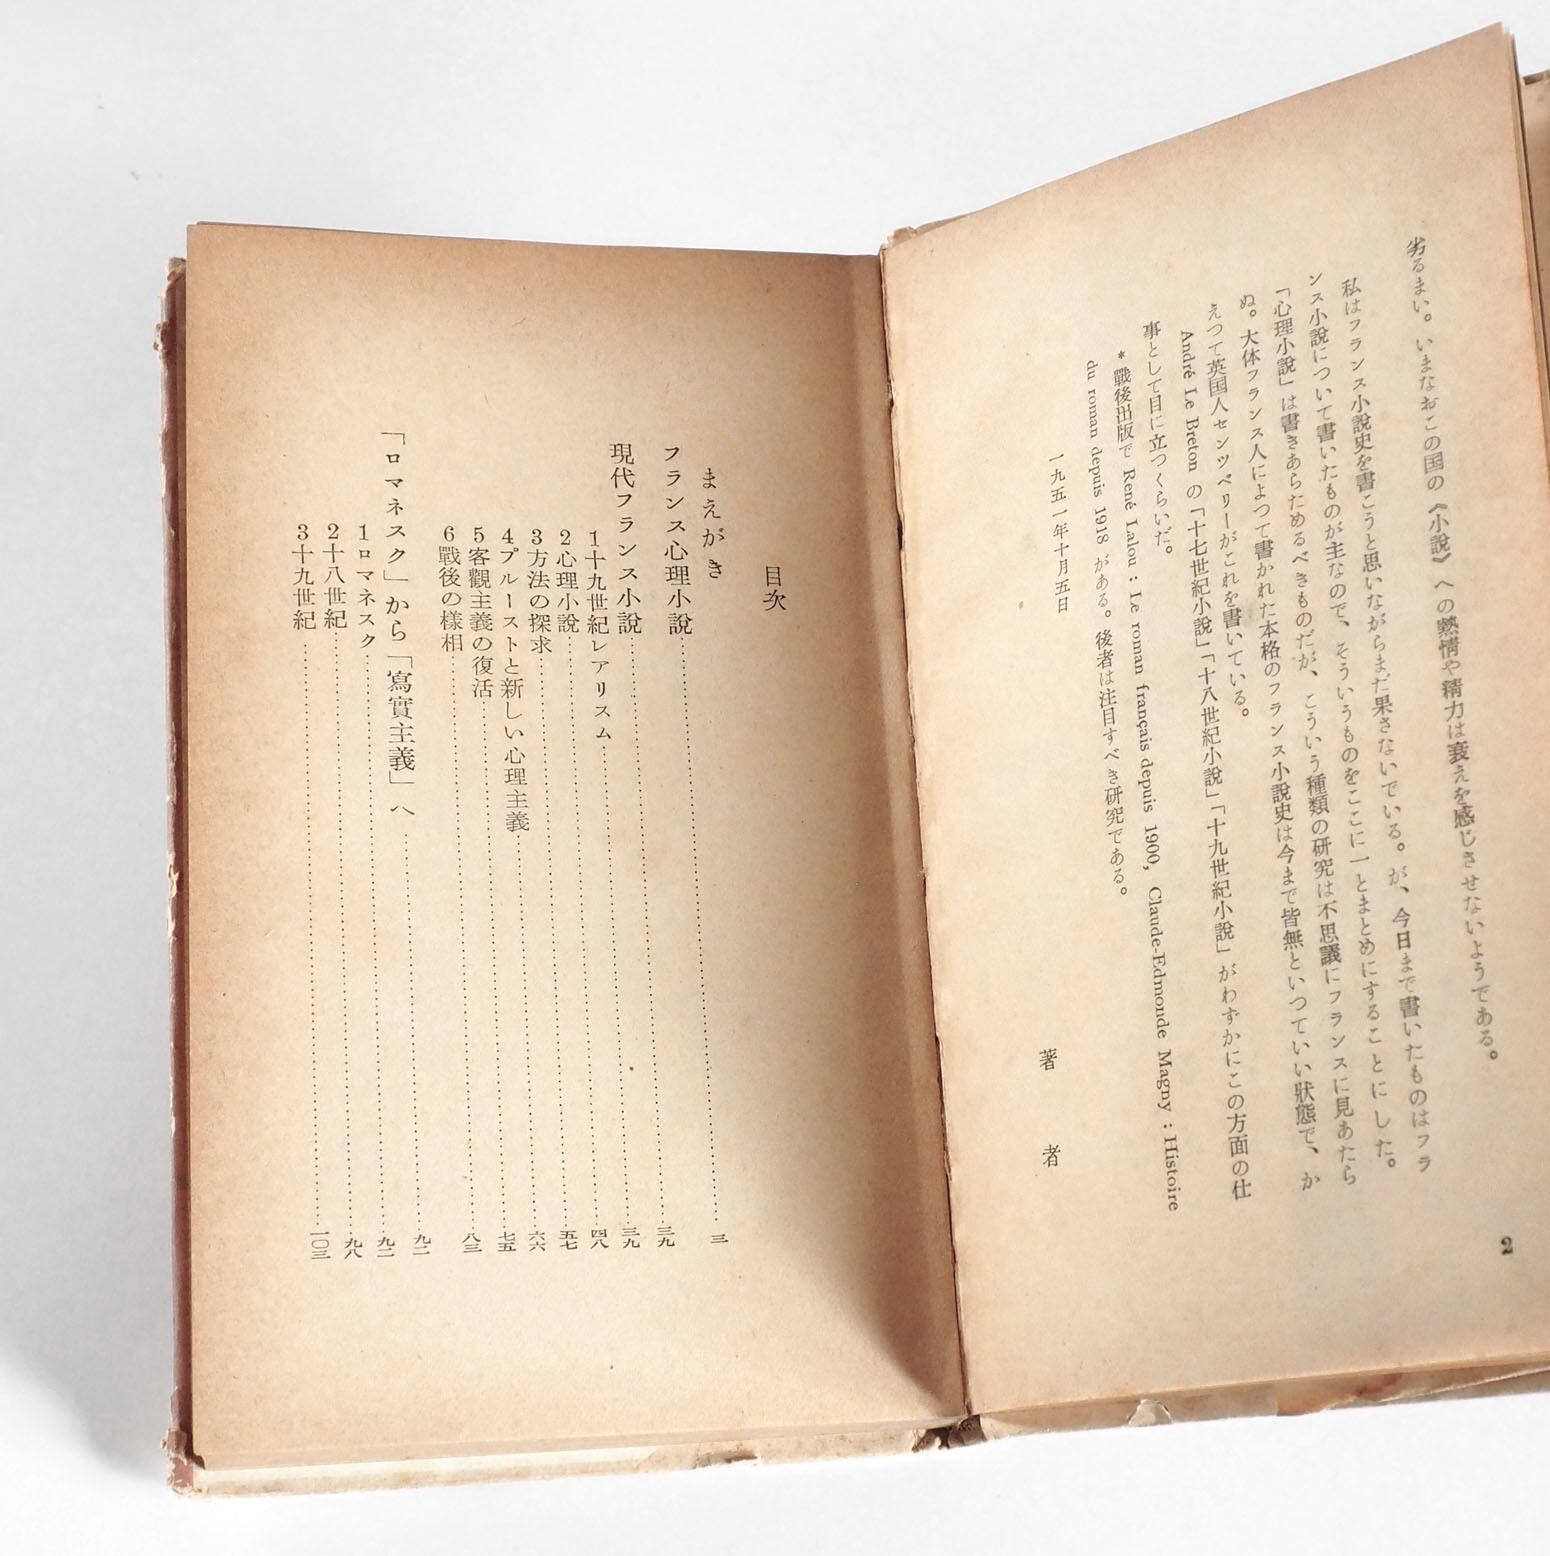 劣るまい。いまなおこの国の《小説》への熱情や精力は衰えを感じさせないようである。
私はフランス小説史を書こうと思いながらまだ果さないでいる。が、今日まで書いたものはフラ
ンス小説について書いたものが主なので、そういうものをここに一とまとめにすることにした。
「心理小説」は書きあらためるべきものだが、こういう種類の研究は不思議にフランスに見あたら
ぬ。大体フランス人によつて書かれた本格のフランス小説史は今まで皆無といつていい狀態で、か
えつて英国人センツベリーがこれを書いている。
André Le Breton の「十七世紀小説」「十八世紀小説」「十九世紀小説」がわずかにこの方面の仕
事として目に立つくらいだ。
*戰後出版で René Lalou : Le roman français depuis 1900, Claude-Edmonde Magny : Histoire
du roman depuis 1918 がある。後者は注目すべき研究である。
一九五一年十月五日
著者
2
目次
まえがき
フランス心理小説…三
現代フランス小説…三九
1十九世紀レアリスム…三九
2心理小説…四八
3方法の探求…五七
4プルーストと新しい心理主義…六六
5客觀主義の復活…七五
6戰後の樣相…八三
「ロマネスク」から「寫實主義」へ…九二
1ロマネスク…九二
2十八世紀…九八
3十九世紀…一〇三